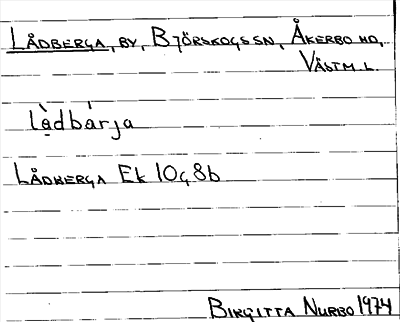 LÅDBERGA, BY, BJÖRSKOGS SN, ÅKERBO HD,
VÄSTM. L.
lạ̀dbárja
LÅDBERGA Ek 10g8b
BIRGITTA NURBO 1974